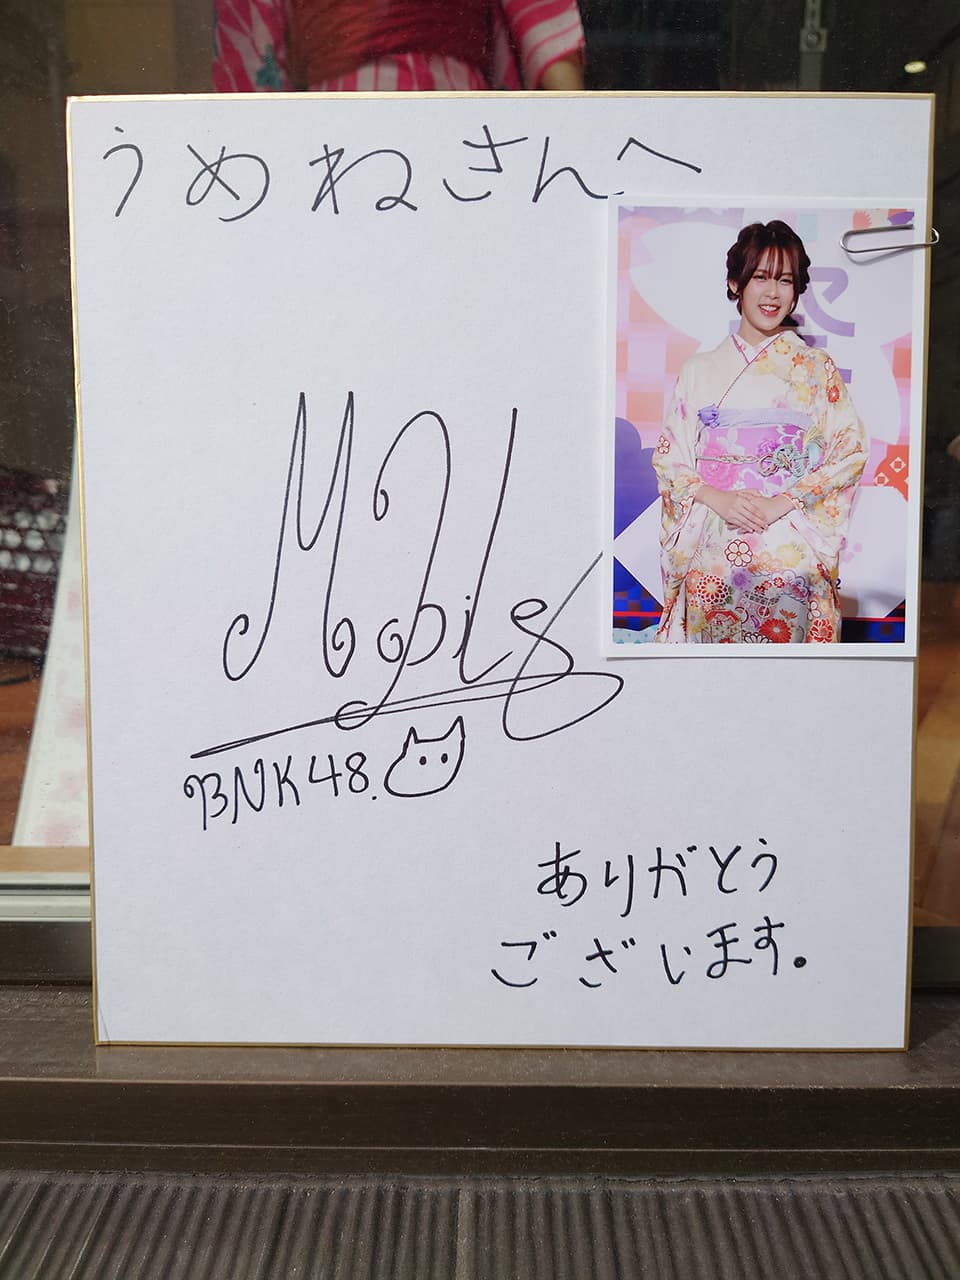 うめねさんへ
Mobile
BNK48.
ありがとう
ございます。